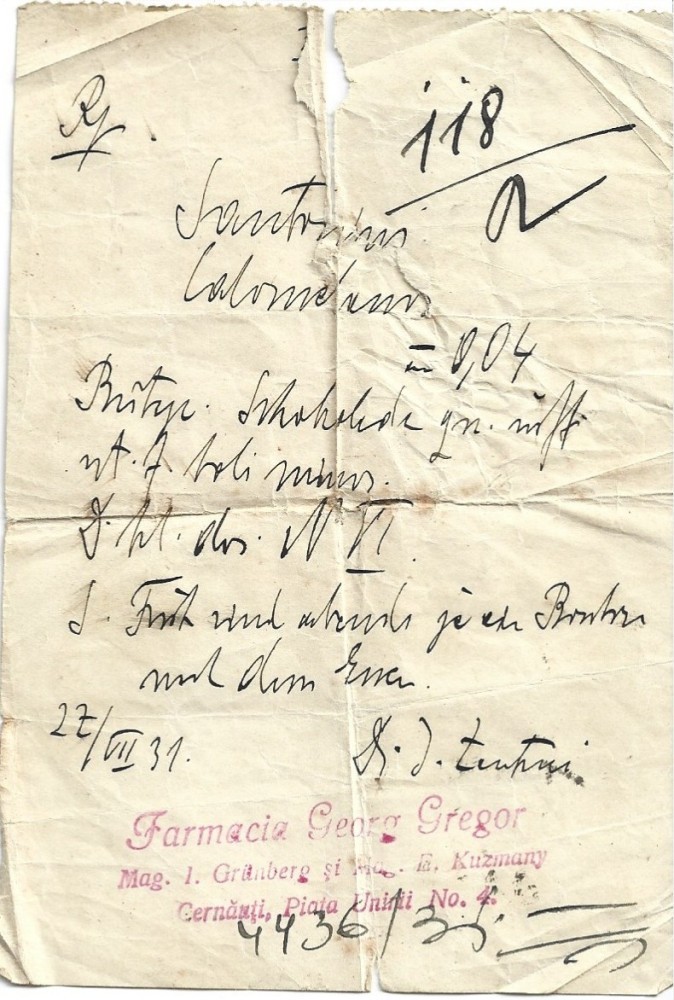 Rp.
118
Santonini
Calomelanos
āā 0,04
Schokolade
ut. f. boli minor.
D. tal. dos. N VI
S. Früh und abends je ein Bonbon
nach dem Essen.
27/VII 31.
Dr. J.
Farmacia Georg Gregor
Mag. I. Grünberg și Mag. E. Kuzmany
Cernăuți, Piața Unirii No. 4.
4436/31.